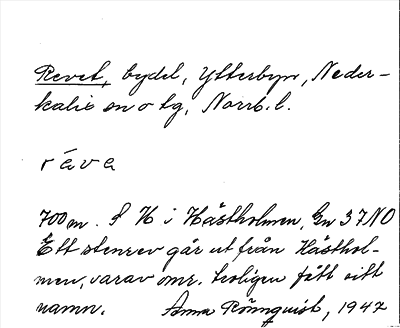 Revet, bydel, Ytterbyn, Neder-
kalix sn o tg, Norrb. l.
réva
700 m. S H i Hästholmen, Gn 37NO
Ett stenrev går ut från Hästhol-
men, varav omr. troligen fått sitt
namn. Anna Rönnquist, 1947